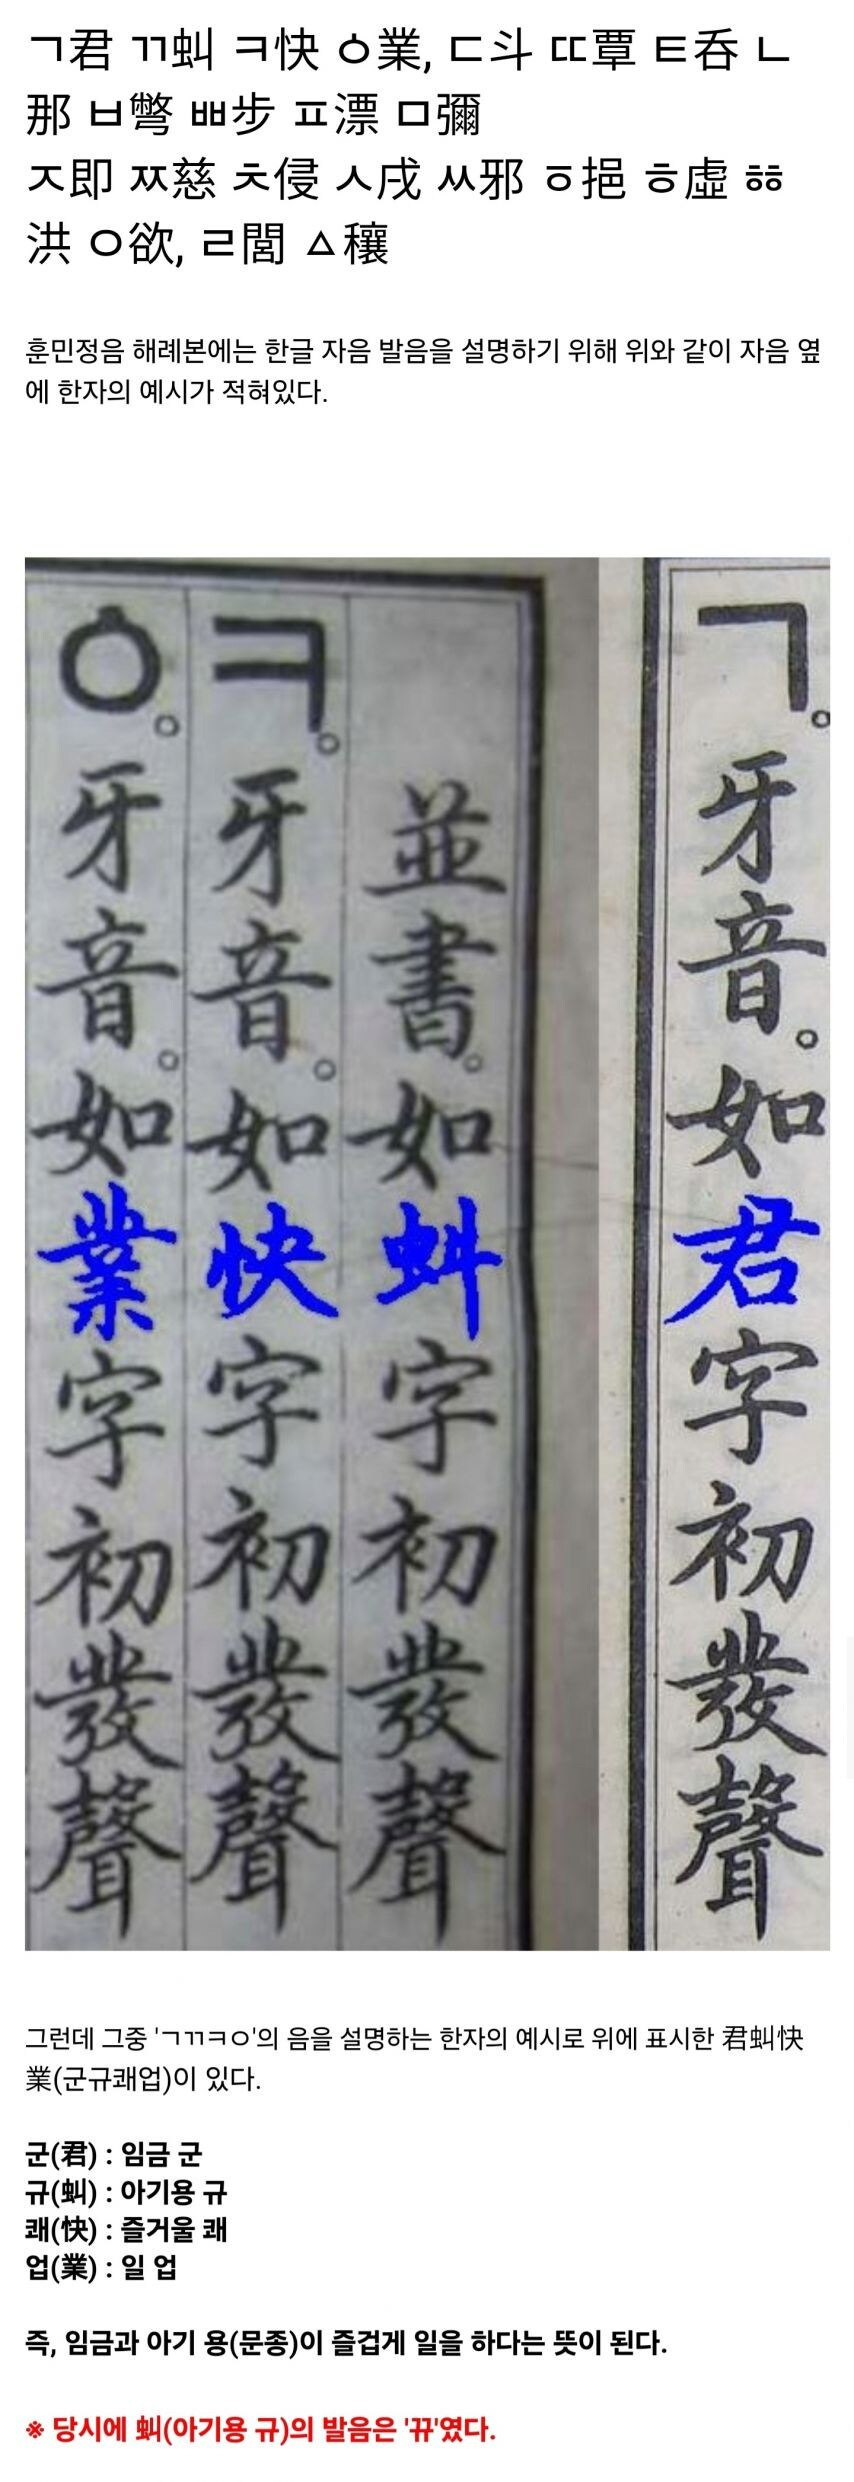 ㄱ君 ㄲ虯 ㅋ快 ㆁ業, ㄷ斗 ㄸ覃 ㅌ呑 ㄴ
那 ㅂ彆 ㅃ步 ㅍ漂 ㅁ彌
ㅈ即 ㅉ慈 ㅊ侵 ㅅ戌 ㅆ邪 ㆆ挹 ㅎ虛 ㆅ
洪 ㅇ欲, ㄹ閭 ㅿ穰
훈민정음 해례본에는 한글 자음 발음을 설명하기 위해 위와 같이 자음 옆
에 한자의 예시가 적혀있다.
ㄱ。牙音。如君字初發聲
並書。如虯字初發聲
ㅋ。牙音。如快字初發聲
ㆁ。牙音。如業字初發聲
그런데 그중 'ㄱㄲㅋㅇ'의 음을 설명하는 한자의 예시로 위에 표시한 君虯快
業(군규쾌업)이 있다.
군(君) : 임금 군
규(虯) : 아기용 규
쾌(快) : 즐거울 쾌
업(業) : 일 업
즉, 임금과 아기 용(문종)이 즐겁게 일을 하다는 뜻이 된다.
※ 당시에 虯(아기용 규)의 발음은 '뀨'였다.